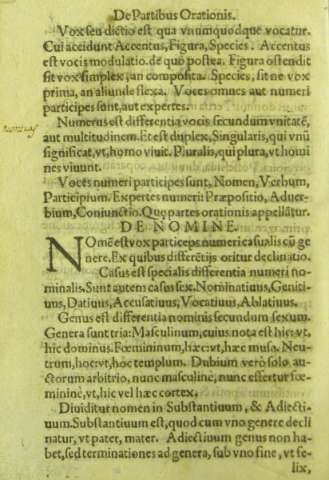 De Partibus Orationis.
Vox seu dictio est qua vnumquodque vocatur.
Cui accidunt Accentus, Figura, Species. Accentus
est vocis modulatio. de quo postea. Figura ostendit
sit vox simplex, an composita. Species, sit ne vox
prima, an aliunde flexa. Voces omnes aut numeri
participes sunt, aut expertes.
Numerus est differentia vocis secundum vnitatē,
aut multitudinem. Et est duplex, Singularis, qui vnū
significat, vt, homo viuit. Pluralis, qui plura, vt homi
nes viuunt.
Voces numeri participes sunt, Nomen, Verbum,
Participium. Expertes numeri: Præpositio, Aduer
bium, Coniunctio. Quę partes orationis appellātur.
DE NOMINE.
Nomē est vox particeps numeri casualis cū ge
nere. Ex quibus differētijs oritur declinatio.
Casus est specialis differentia numeri no-
minalis. Sunt autem casus sex. Nominatiuus, Geniti-
uus, Datiuus, Accusatiuus, Vocatiuus, Ablatiuus.
Genus est differentia nominis secundum sexum.
Genera sunt tria: Masculinum, cuius nota est hic: vt,
hic dominus. Fœmininum, hæc: vt, hæc musa. Neu-
trum, hoc: vt, hoc templum. Dubium verò solo au-
ctorum arbitrio, nunc masculinè, nunc effertur fœ-
mininè, vt, hic vel hæc cortex.
Diuiditur nomen in Substantiuum, & Adiecti-
uum. Substantiuum est, quod cum vno genere decli
natur, vt pater, mater. Adiectiuum genus non ha-
bet, sed terminationes ad genera, sub vno fine, vt fe-
lix,